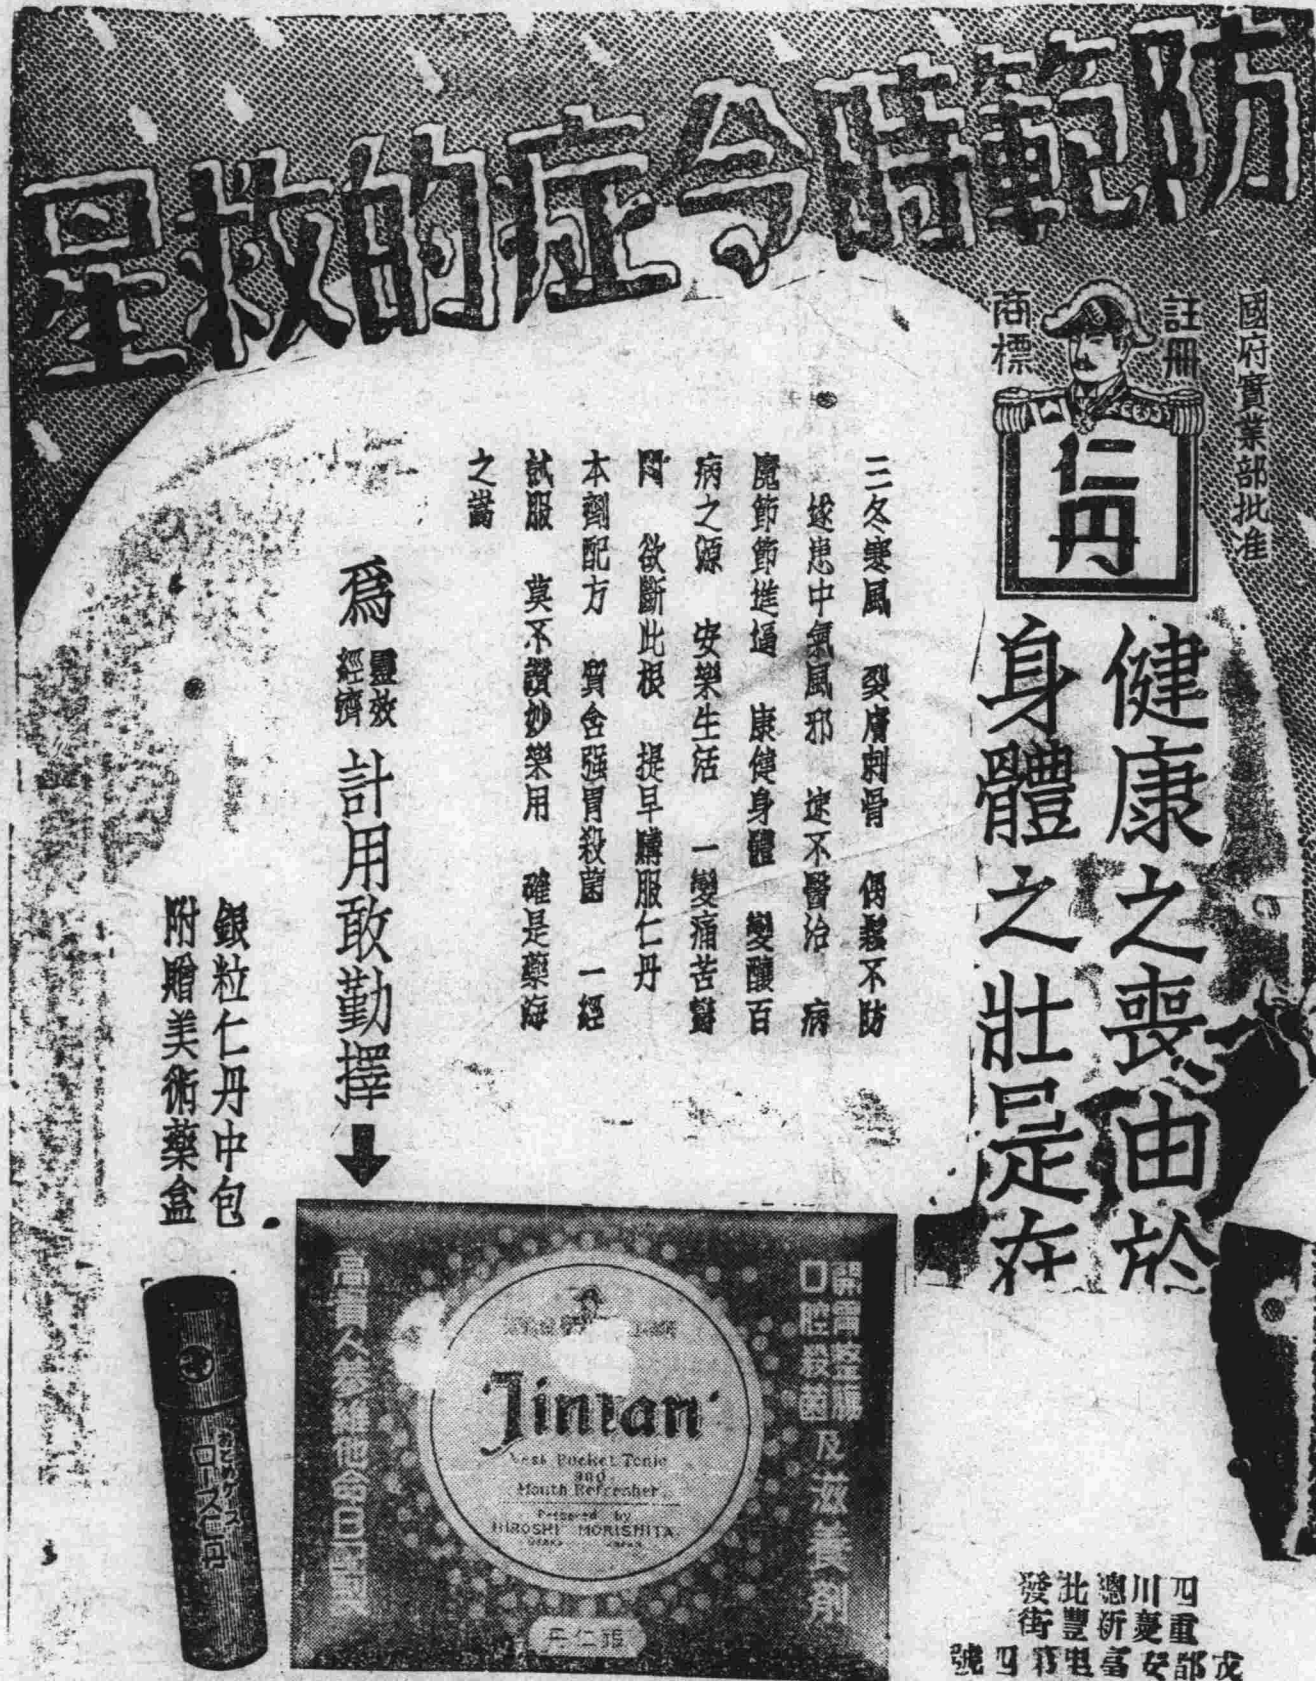 防範時令症的救星
國府實業部批准
註冊
商標
仁丹
健康之喪由於
身體之壯是在
三冬寒風　裂膚刺骨　偶懈不防
遂患中氣風邪　遽不醫治　病
魔節節進逼　康健身體　變釀百
病之源　安樂生活　一變痛苦
悶　欲斷此根　提早購服仁丹
本劑配方　質含强胃殺菌　一經
試服　莫不讚妙樂用　確是藥海
之
爲靈效經濟計用敢勤擇
銀粒仁丹中包
附贈美術藥盒
開胃整腸
口腔殺菌及滋養剤
Jintan
Vest Pocket Tonic
and
Mouth Refresher
Prepared by
HIROSHI MORISHITA
OSAKA JAPAN
高貴人參維他命
ローズ仁丹
四川總北發
重慶新豐街